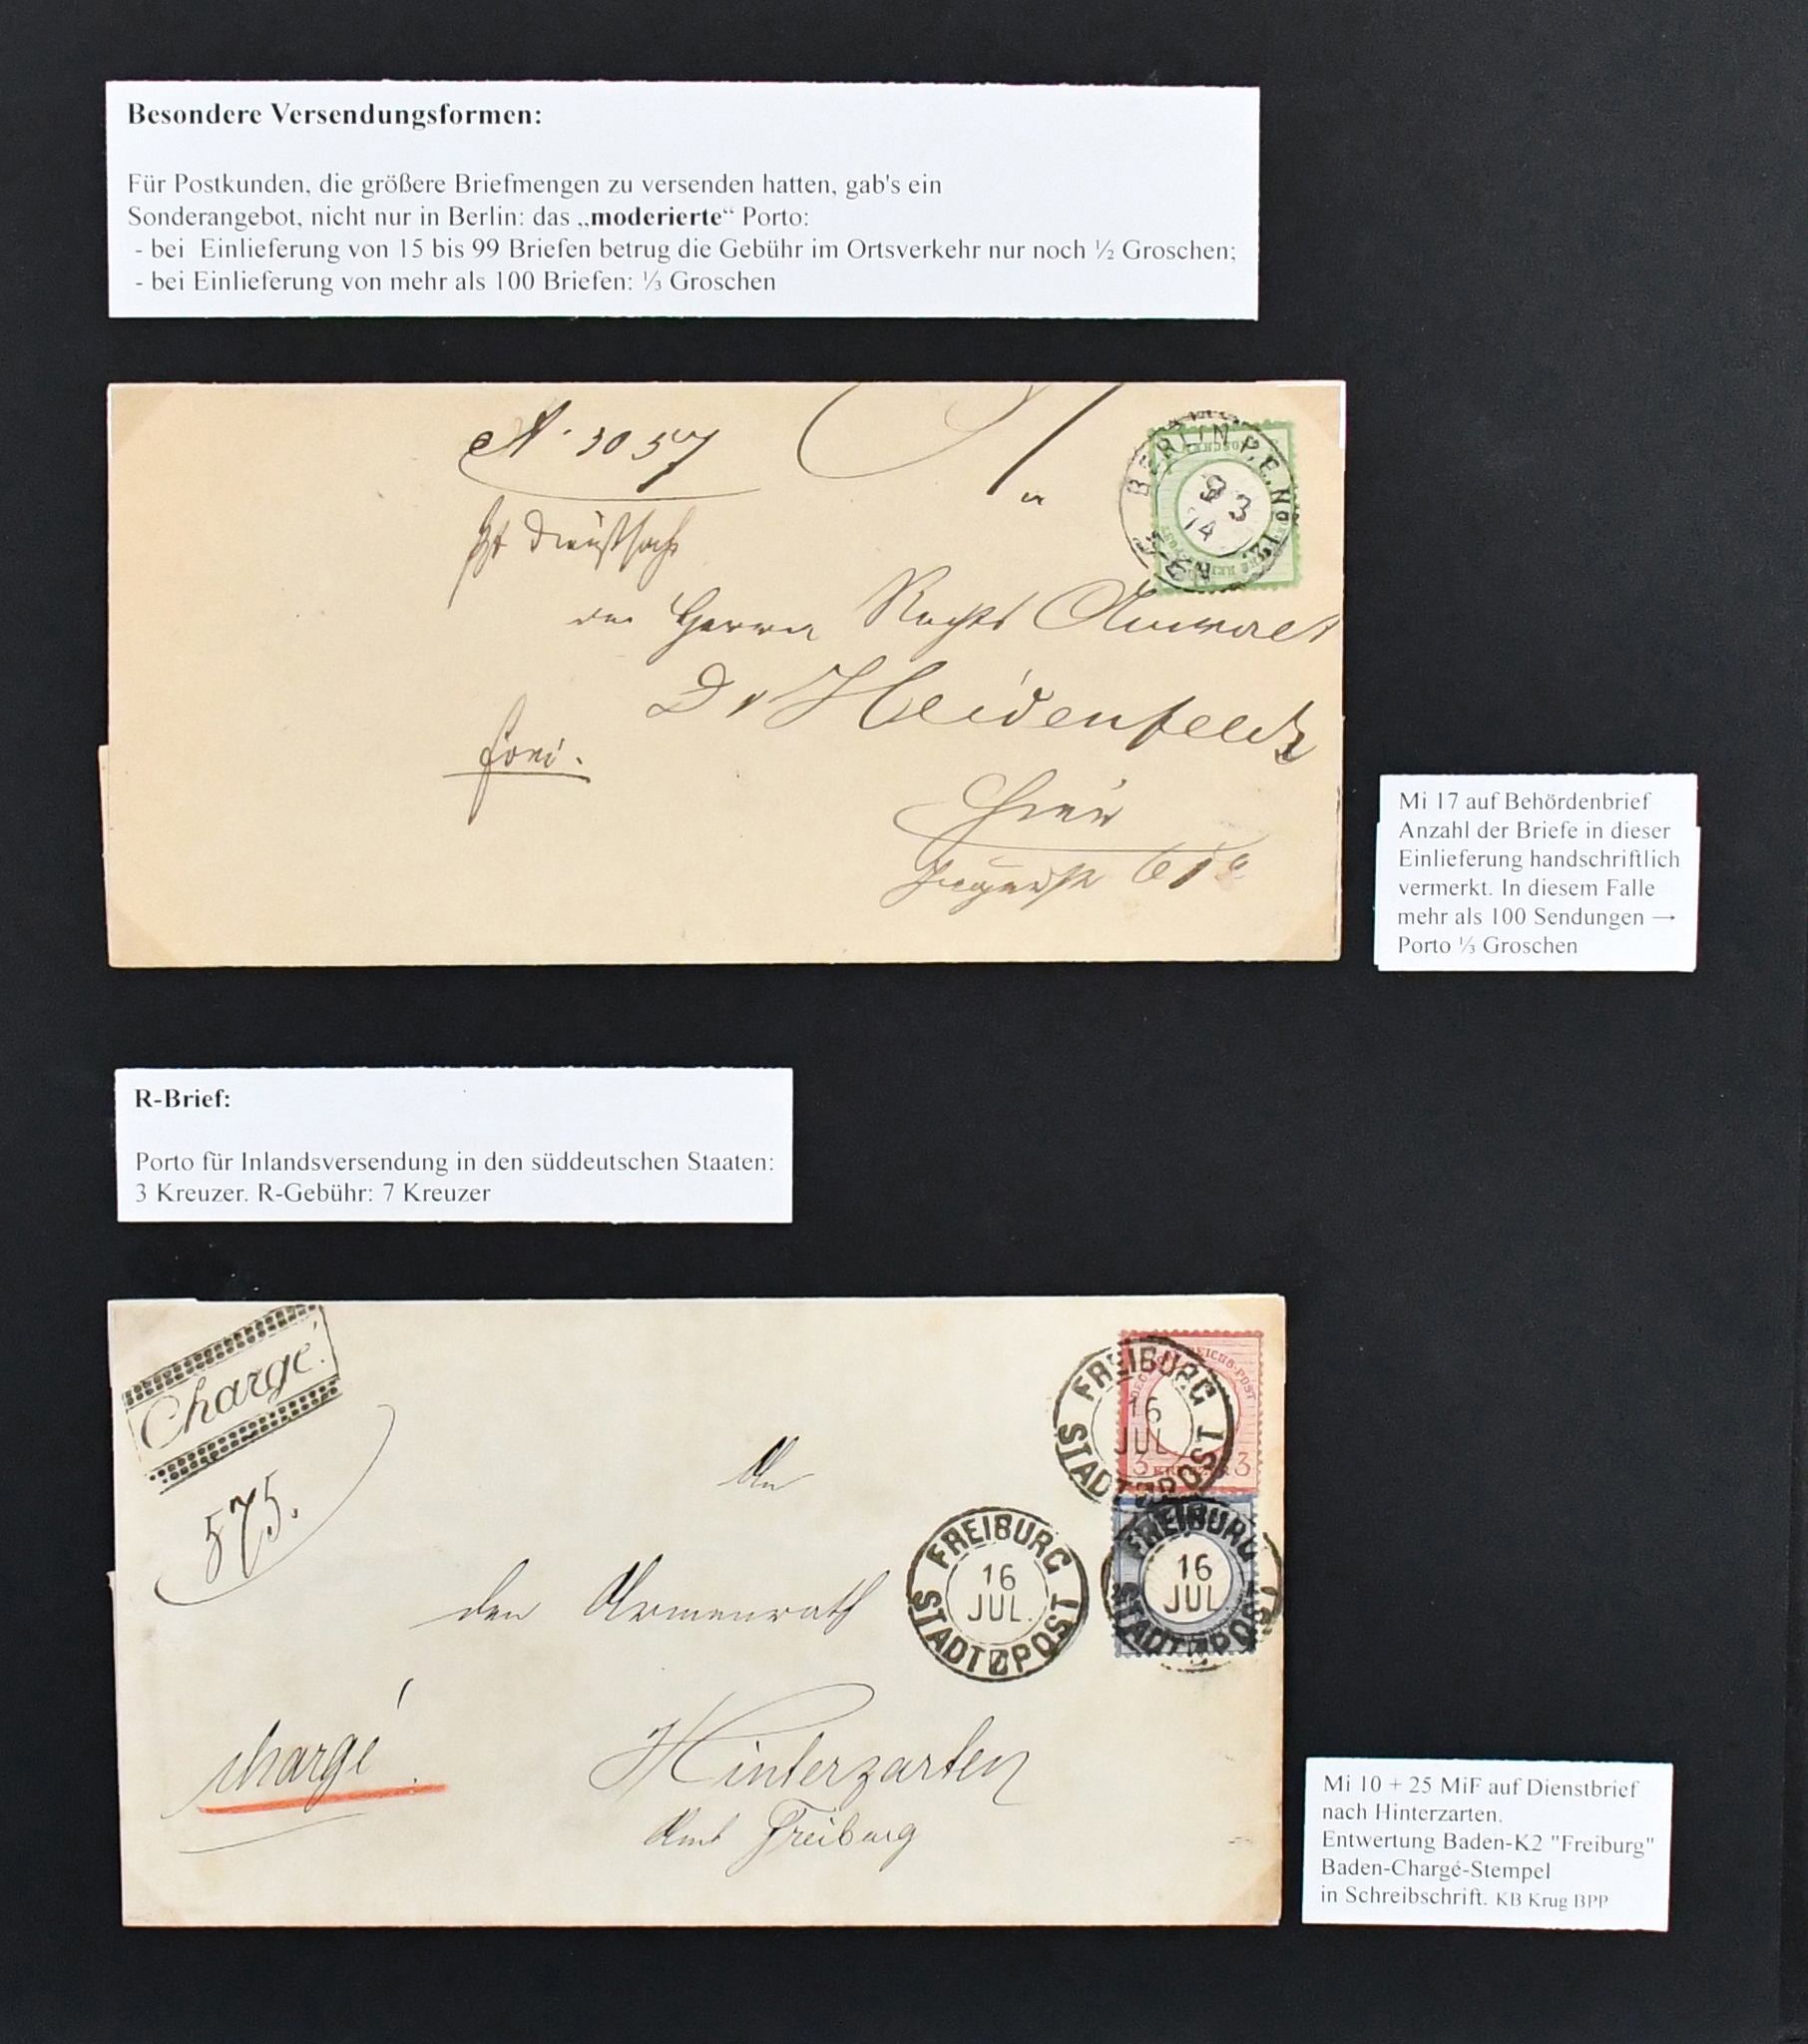 Besondere Versendungsformen:
Für Postkunden, die größere Briefmengen zu versenden hatten, gab's ein
Sonderangebot, nicht nur in Berlin: das „moderierte“ Porto:
- bei Einlieferung von 15 bis 99 Briefen betrug die Gebühr im Ortsverkehr nur noch ½ Groschen;
- bei Einlieferung von mehr als 100 Briefen: ⅓ Groschen
BERLIN P.E. No 12.
9 3
74
den Herrn Rechts Anwalt
Dr Heidenfeld
frei.
Hier
Mi 17 auf Behördenbrief
Anzahl der Briefe in dieser
Einlieferung handschriftlich
vermerkt. In diesem Falle
mehr als 100 Sendungen →
Porto ⅓ Groschen
R-Brief:
Porto für Inlandsversendung in den süddeutschen Staaten:
3 Kreuzer. R-Gebühr: 7 Kreuzer
Chargé.
575.
FREIBURG
16
JUL.
STADTPOST
3 3
An
FREIBURG
16
JUL.
STADTPOST
FREIBURG
16
JUL.
STADTPOST
den Armenrath
chargé
Hinterzarten
Amt Freiburg
Mi 10 + 25 MiF auf Dienstbrief
nach Hinterzarten.
Entwertung Baden-K2 "Freiburg"
Baden-Chargé-Stempel
in Schreibschrift. KB Krug BPP